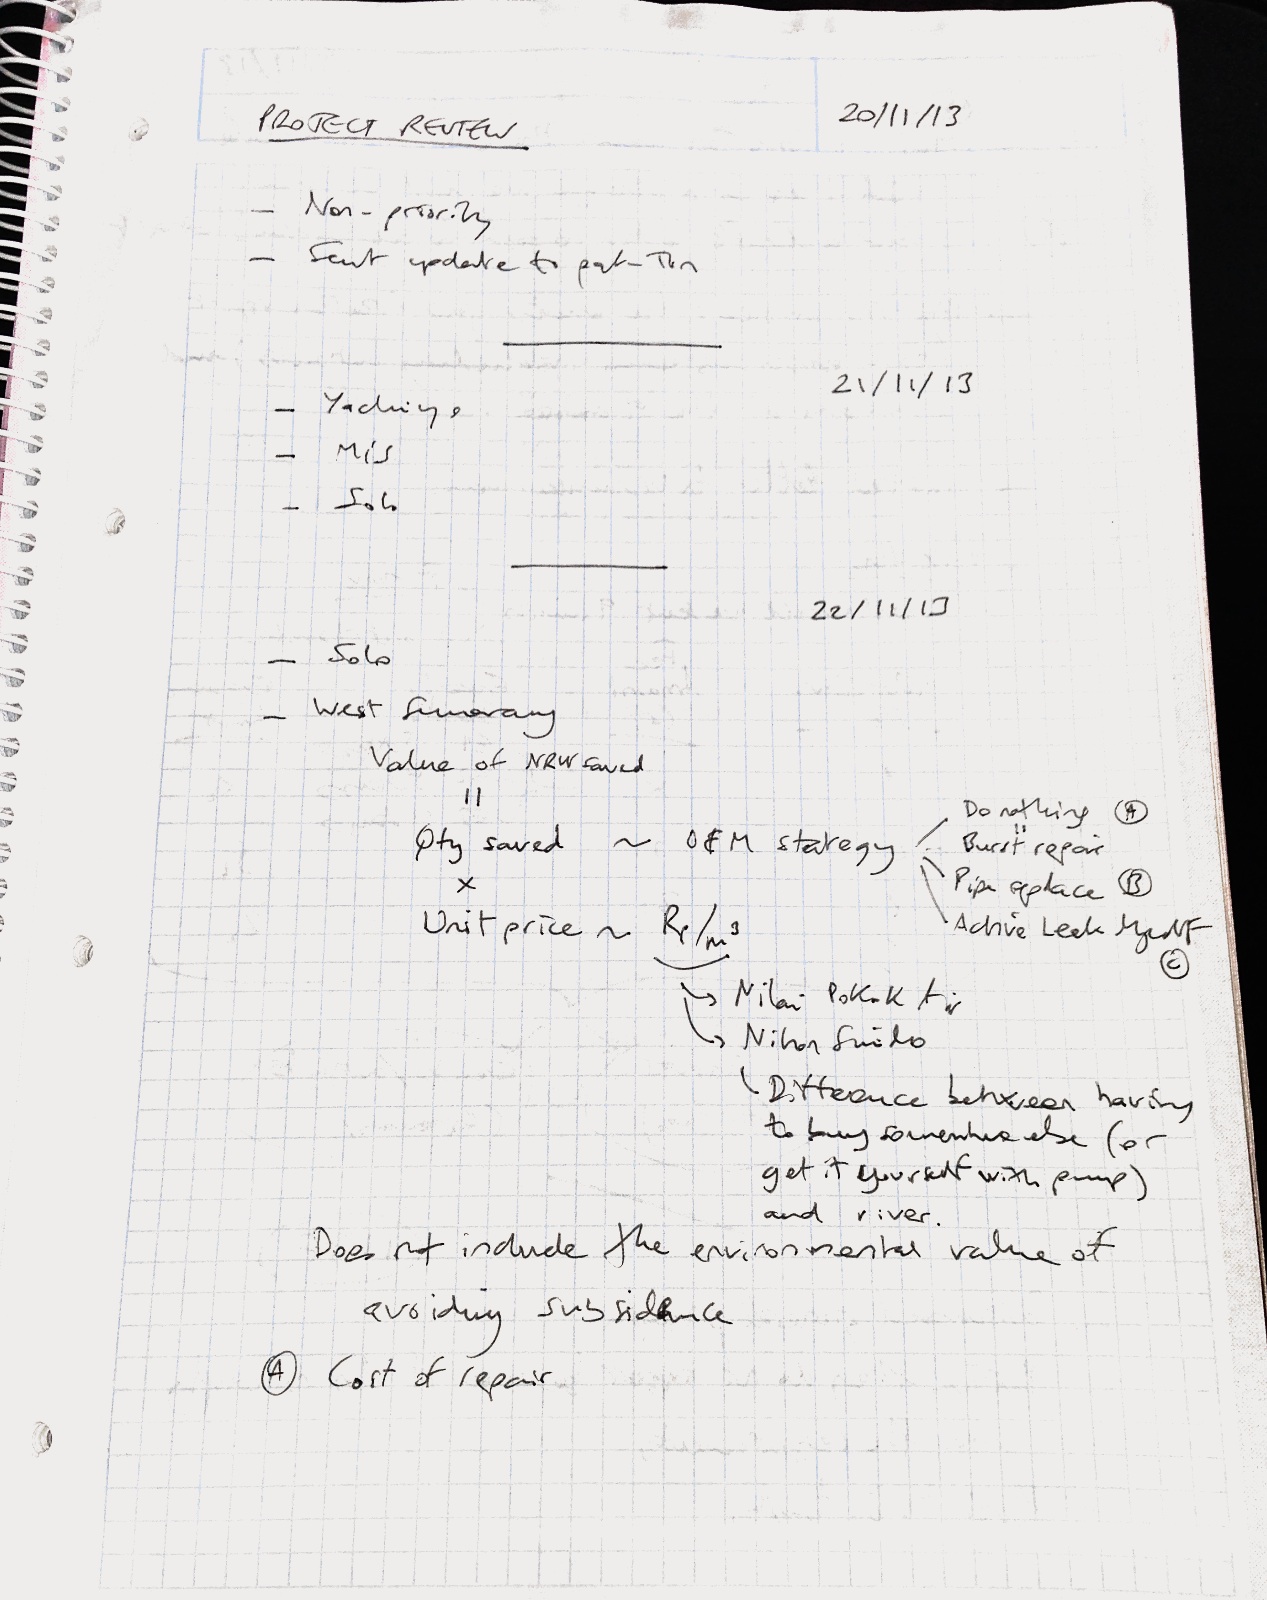 PROJECT REVIEW
20/11/13
- Non-priority
- Sent update to
21/11/13
- Yachiyo
- MIS
- Solo
22/11/13
- Solo
- West Semarang
Value of NRW saved
=
Qty saved ~ O&M stategy
Do nothing (A)
=
Burst repair
Pipe replace (B)
Active Leak Mgmt
(C)
x
Unit price ~ Rp/m³
→ Nilai Pokok Air
→ Nihon Suido
Difference between having
to buy somewhere else (or
get it yourself with pump)
and river.
Does not include the environmental value of
avoiding subsidence
(A) Cost of repair